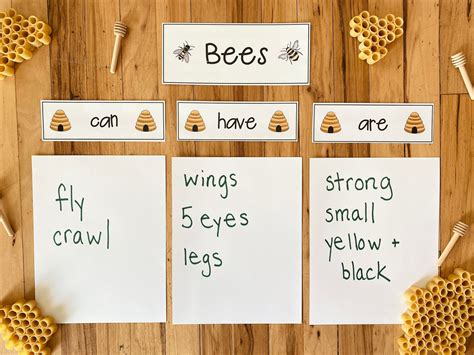 Bees
can
have
are
fly
crawl
wings
5 eyes
legs
strong
small
yellow +
black